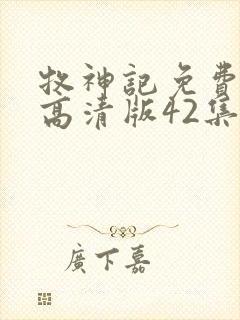 牧神記免費
高清版42集
廣下嘉